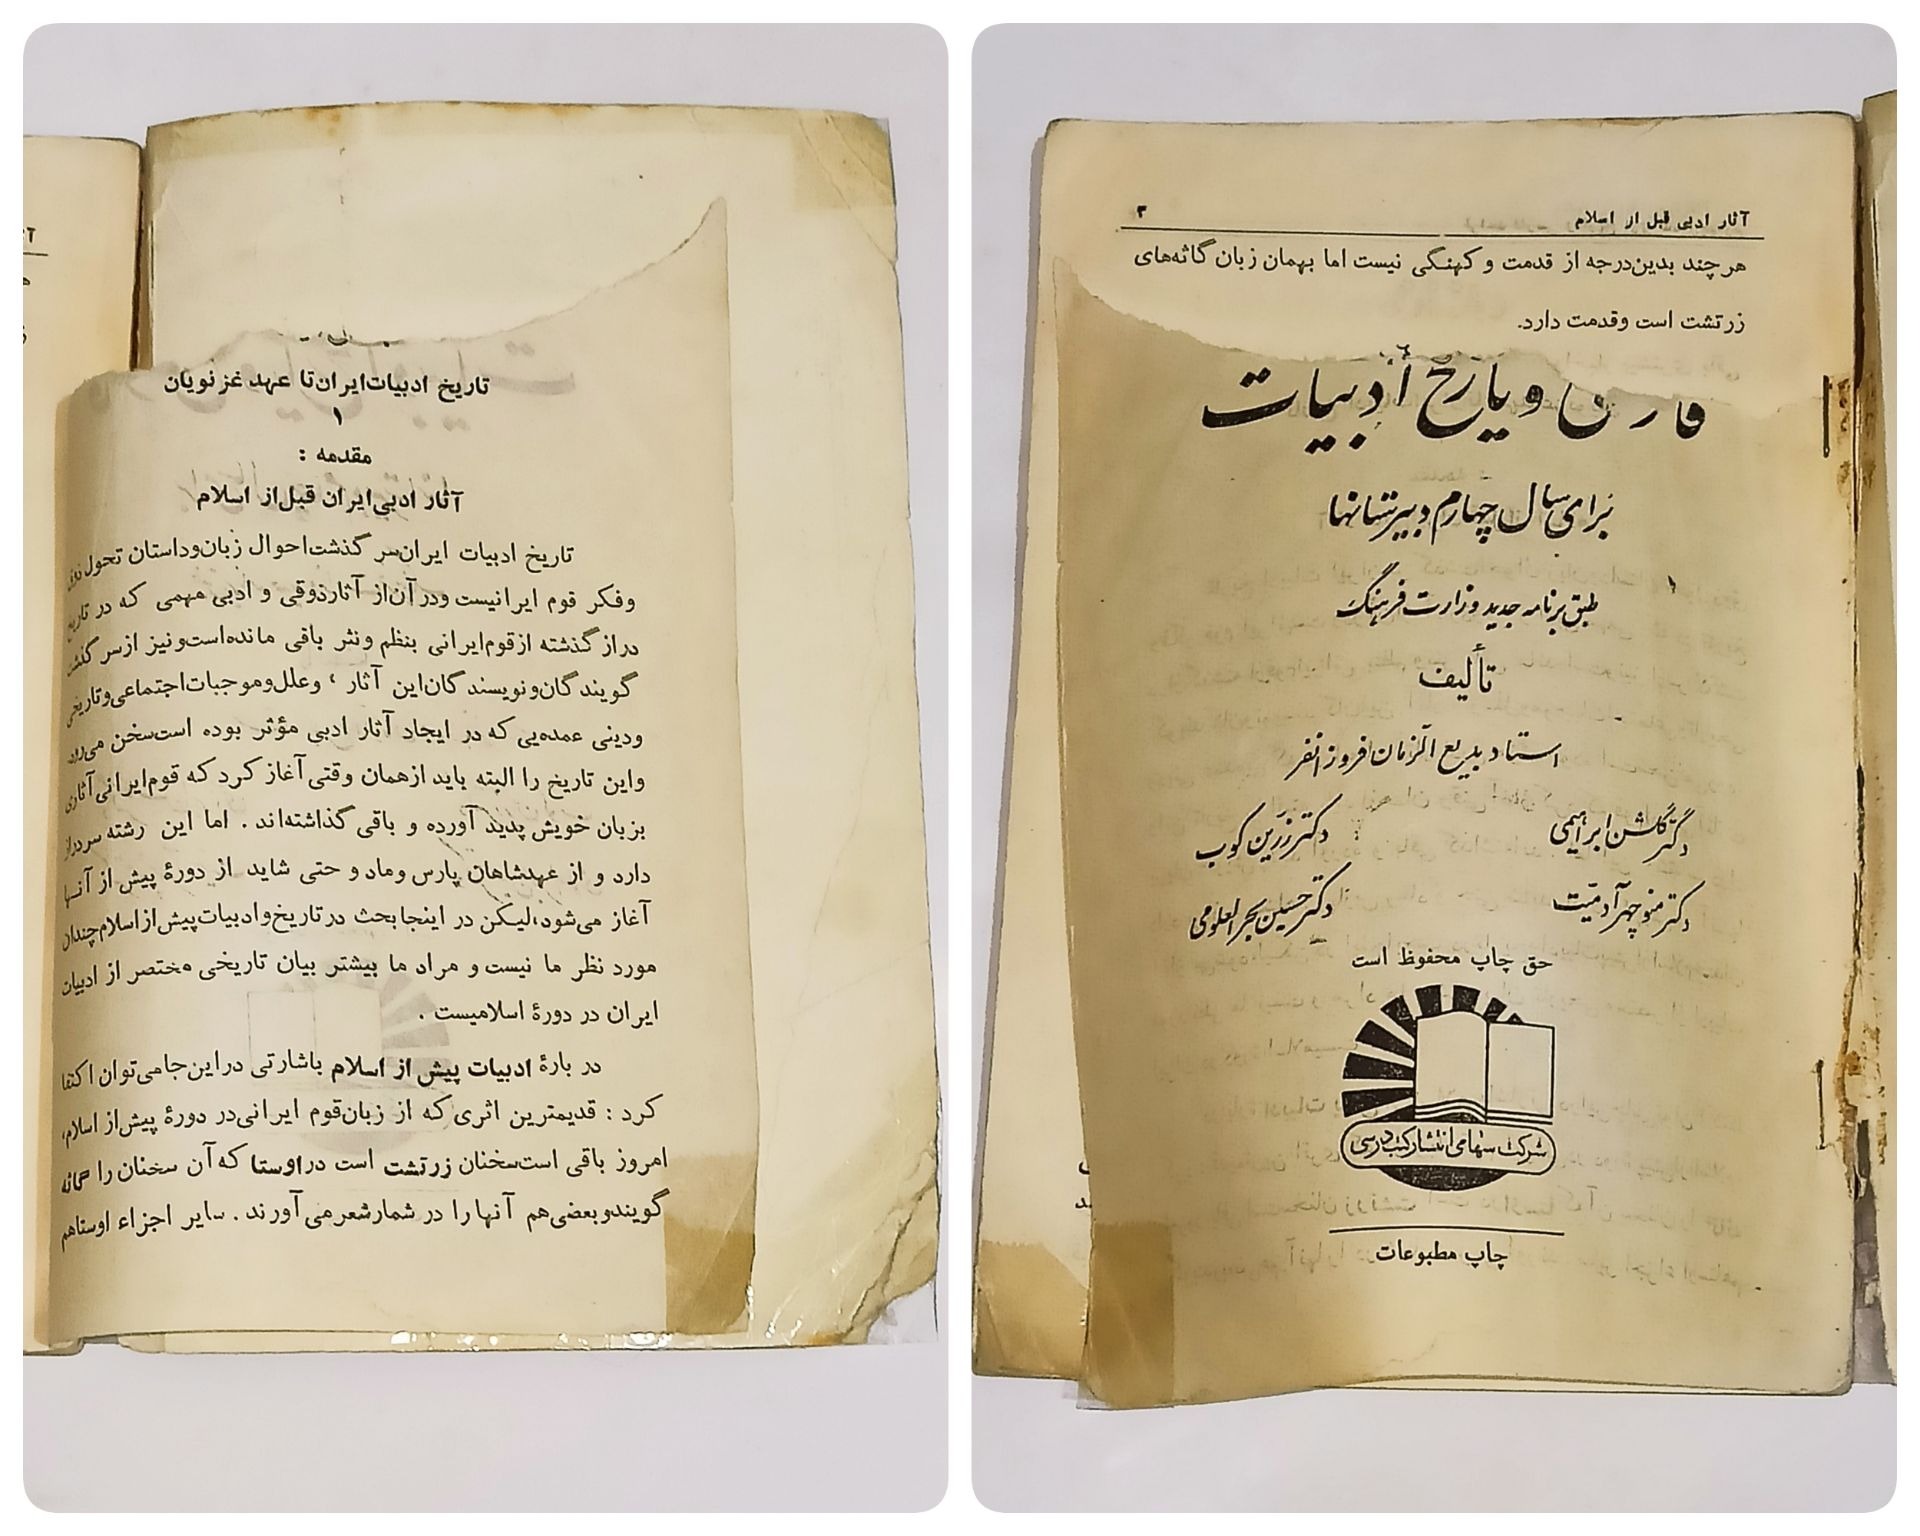 تاریخ ادبیات ایران تا عهد غزنویان
۱
مقدمه :
آثار ادبی ایران قبل از اسلام
تاریخ ادبیات ایران سر گذشت احوال زبان و داستان تحول ذوق
و فکر قوم ایرانیست و در آن از آثار ذوقی و ادبی مهمی که در تاریخ
دراز گذشته از قوم ایرانی بنظم و نثر باقی مانده است و نیز از سر گذشت
گویندگان و نویسندگان این آثار ، و علل و موجبات اجتماعی و تاریخی
و دینی عمده‌یی که در ایجاد آثار ادبی مؤثر بوده است سخن می‌رود
و این تاریخ را البته باید از همان وقتی آغاز کرد که قوم ایرانی آثاری
بزبان خویش پدید آورده و باقی گذاشته‌اند . اما این رشته سر دراز
دارد و از عهد شاهان پارس و ماد و حتی شاید از دورهٔ پیش از آنها
آغاز می‌شود، لیکن در اینجا بحث در تاریخ و ادبیات پیش از اسلام چندان
مورد نظر ما نیست و مراد ما بیشتر بیان تاریخی مختصر از ادبیات
ایران در دورهٔ اسلامیست .
در بارهٔ ادبیات پیش از اسلام باشارتی در این جا می‌توان اکتفا
کرد : قدیمترین اثری که از زبان قوم ایرانی در دورهٔ پیش از اسلام،
امروز باقی است سخنان زرتشت است در اوستا که آن سخنان را گاثه
گویند و بعضی هم آنها را در شمار شعر می آورند . سایر اجزاء اوستا هم
آثار ادبی قبل از اسلام ۳
هر چند بدین درجه از قدمت و کهنگی نیست اما بهمان زبان گاثه‌های
زرتشت است و قدمت دارد.
و تاریخ ادبیات
برای سال چهارم دبیرستانها
طبق برنامه جدید وزارت فرهنگ
تألیف
استاد بدیع الزمان فروزانفر
دکتر گلشن ابراهیمی دکتر زرین کوب
دکتر منوچهر آدمیت دکتر حسین بحرالعلومی
حق چاپ محفوظ است
شرکت سهامی انتشار کتب درسی
چاپ مطبوعات